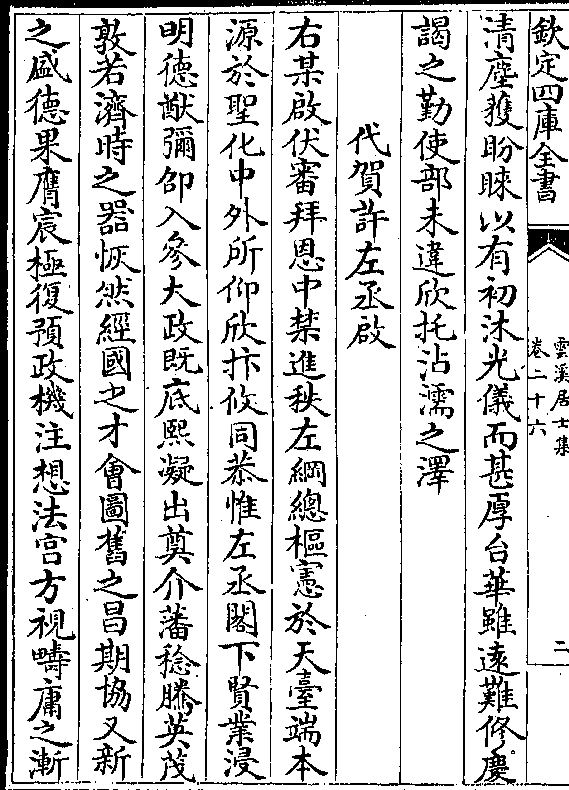 欽定四庫全書
雲溪居士集
卷二十六
二
清塵獲盼睞以有初沐光儀而甚厚台華雖遠難修慶
謁之勤使部未違欣托沾濡之澤
代賀許左丞啟
右某啟伏審拜恩中禁進秩左綱總樞憲於天臺端本
源於聖化中外所仰欣抃攸同恭惟左丞閣下賢業浸
明德猷彌卲入參大政既底熙凝出奠介藩稔騰英茂
敦若濟時之器恢然經國之才會圖舊之昌期協又新
之盛德果膺宸極復預政機注想法宮方視疇庸之漸